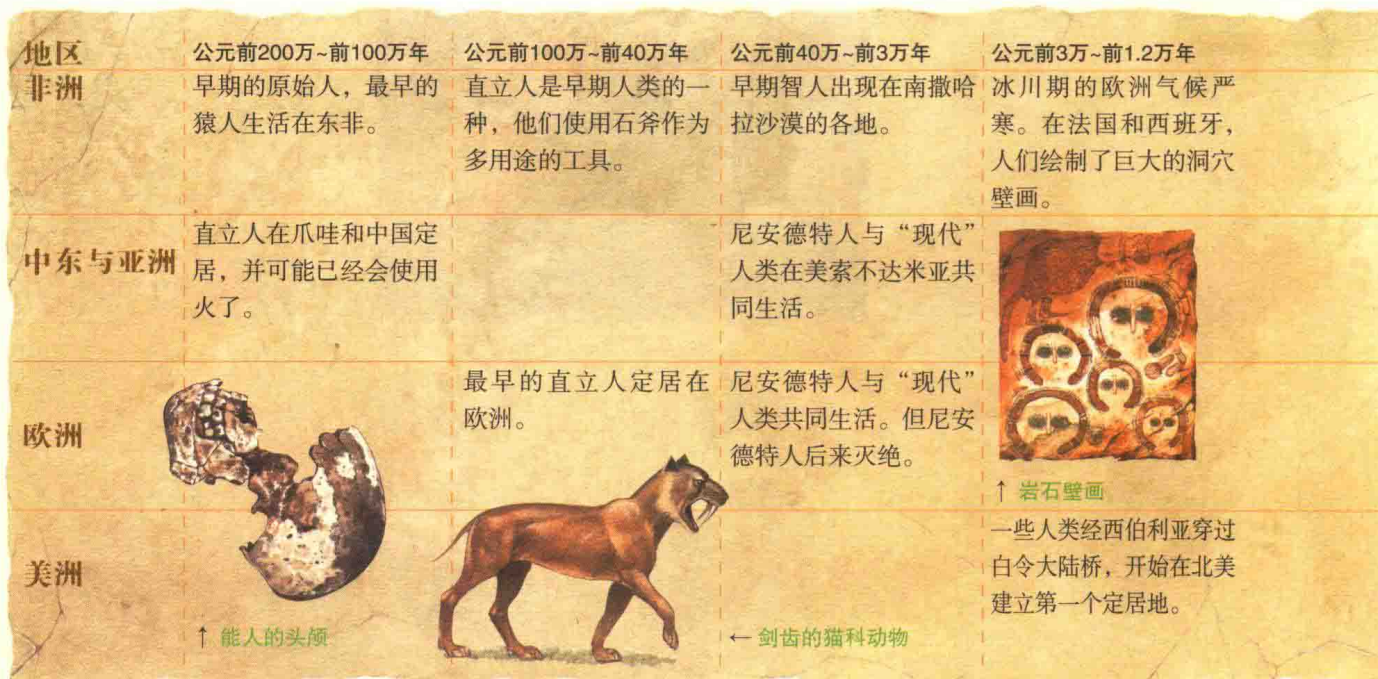 地区 公元前200万~前100万年 公元前100万~前40万年 公元前40万~前3万年 公元前3万~前1.2万年
非洲
早期的原始人，最早的
猿人生活在东非。
直立人是早期人类的一
种，他们使用石斧作为
多用途的工具。
早期智人出现在南撒哈
拉沙漠的各地。
冰川期的欧洲气候严
寒。在法国和西班牙，
人们绘制了巨大的洞穴
壁画。
中东与亚洲
直立人在爪哇和中国定
居，并可能已经会使用
火了。
尼安德特人与“现代”
人类在美索不达米亚共
同生活。
欧洲
最早的直立人定居在
欧洲。
尼安德特人与“现代”
人类共同生活。但尼安
德特人后来灭绝。
↑ 岩石壁画
美洲
↑ 能人的头颅
← 剑齿的猫科动物
一些人类经西伯利亚穿过
白令大陆桥，开始在北美
建立第一个定居地。